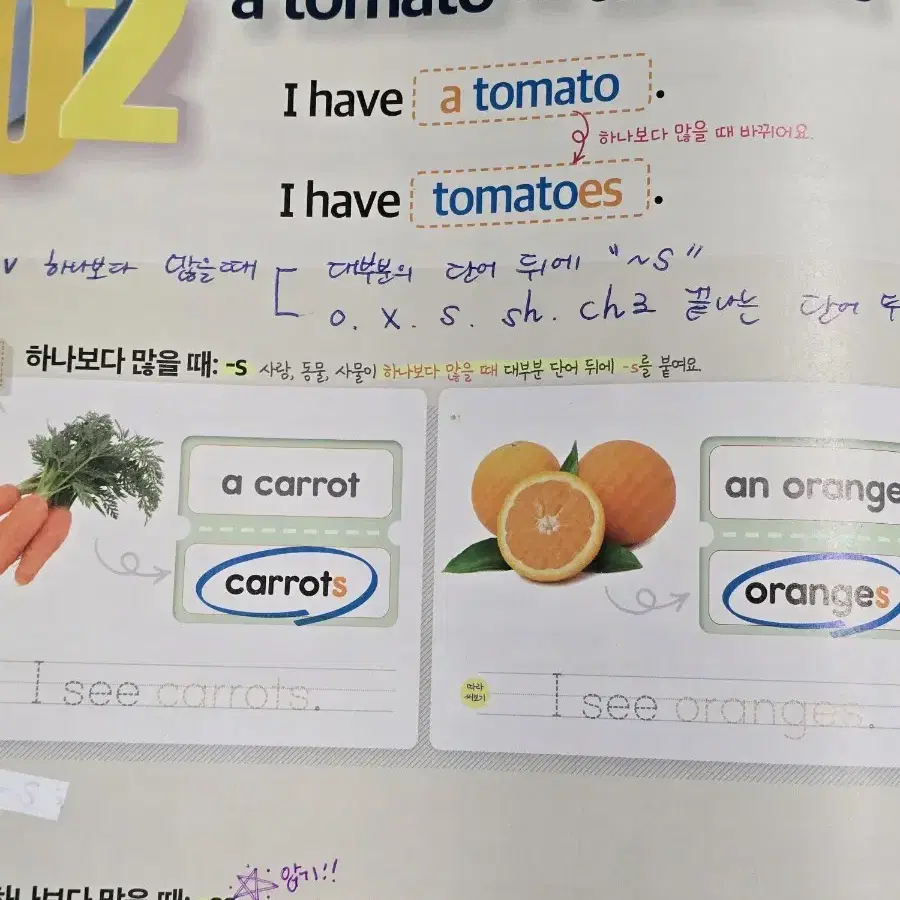 02
a tomato
I have a tomato.
하나보다 많을 때 바뀌어요.
I have tomatoes.
v 하나보다 많을 때
대부분의 단어 뒤에 "~s"
o. x. s. sh. ch로 끝나는 단어 뒤
하나보다 많을 때: -s 사람, 동물, 사물이 하나보다 많을 때 대부분 단어 뒤에 -s를 붙여요.
a carrot
carrots
I see carrots.
an orange
oranges
따라 써보기
I see oranges.
-s
하나보다 많을 때:
암기!!